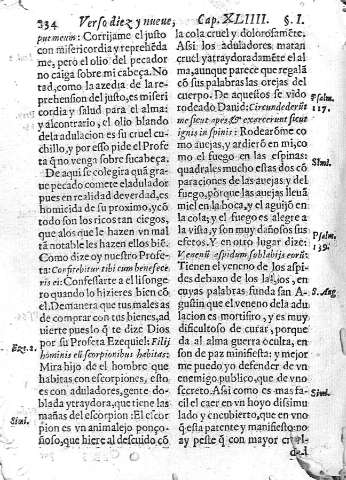 234 Verso diez y nueve, Cap. XLIIII. §. I.
put meum: Corrijame el justo
con misericordia y reprehẽda
me, pero el olio del pecador
no caiga sobre mi cabeça. No
tad, como la azedia de la re
prehension del justo, es miseri
cordia y salud para el alma:
y al contrario, el olio blando
de la adulacion es su cruel cu-
chillo, y por esso pide el Profe
ta q̃ no venga sobre su cabeça.
De aqui se colegira quã gra-
ue pecado comete el adulador
pues en realidad de verdad, es
homicida de su proximo, y cõ
todo son los ricos tan ciegos,
que a los que le hazen vn mal
tã notable les hazen ellos biẽ.
Como dize oy nuestro Profe-
ta: Confitebitur tibi cum benefece-
ris ei: Confessarte a el lisonge-
ro quando lo hizieres bien cõ
el. Demanera que tus males as
de comprar con tus bienes, ad
uierte pues lo q̃ te dize Dios
por su Profeta Ezequiel: Filij
hominis cũ scorpionibus habitas:
Mira hijo de el hombre que
habitas con escorpiones, esto
es con aduladores, gente do-
blada y traydora, que tiene las
mañas del escorpion: El escor
pion es vn animalejo ponço-
ñoso, que hiere al descuido cõ
Eze. 2.
Simi.
la cola cruel y dolorosamẽte.
Assi los aduladores matan
cruel y traydoradamẽte el al
ma, aunque parece que regalã
cõ sus palabras las orejas del
cuerpo. De aquestos se vido
rodeado Dauid: Circundederũt
me sicut apes & exarserunt sicut
ignis in spinis: Rodearõme co
mo auejas, y ardierõ en mi, co
mo el fuego en las espinas:
quadrales mucho estas dos cõ
paraciones de las auejas y del
fuego, porque las auejas lleuã
miel en la boca, y el aguijõ en
la cola; y el fuego es alegre a
la vista, y son muy dañosos sus
efetos. Y en otro lugar dize:
Venenũ aspidum sub labijs eorũ:
Tienen el veneno de los aspi-
des debaxo de los labios, en
cuyas palabras funda san A-
gustin que el veneno de la adu
lacion es mortifero, y es muy
dificultoso de curar, porque
da al alma guerra oculta, en
son de paz manifiesta: y mejor
me puedo yo defender de vn
enemigo publico, que de vno
secreto. Assi como es mas fa-
cil el caer en vn hoyo dissimu
lado y encubierto, que en vno
q̃ esta patente y manifiesto: no
ay peste q̃ con mayor
Psalm.
117.
Simi.
Psalm.
139.
S. Aug
Simi.